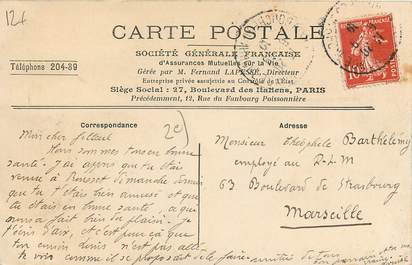 12f
CARTE POSTALE
SOCIÉTÉ GÉNÉRALE FRANÇAISE
d'Assurances Mutuelles sur la Vie
Gérée par M. Fernand Directeur
Entreprise privée assujettie au Contrôle de l'État
Téléphone 204-89
Siège Social : 27, Boulevard des Italiens, PARIS
Précédemment, 12, Rue du Faubourg Poissonnière
Correspondance
Adresse
2e
Mon cher filleul
Nous sommes tous en bonne
santé. J'ai appris que tu étais
venu à Rousset dimanche dernier
que tu t'étais bien amusé et que
tu étais en bonne santé, a qui
nous a fait bien du plaisir. Je
t'écris d'Aix, et c'est pour ça que
ton cousin n'est pas allé
te voir comme il se proposait de le faire
Monsieur Théophile Barthélémy
employé au P-L-M
63 Boulevard de Strasbourg
Marseille
10